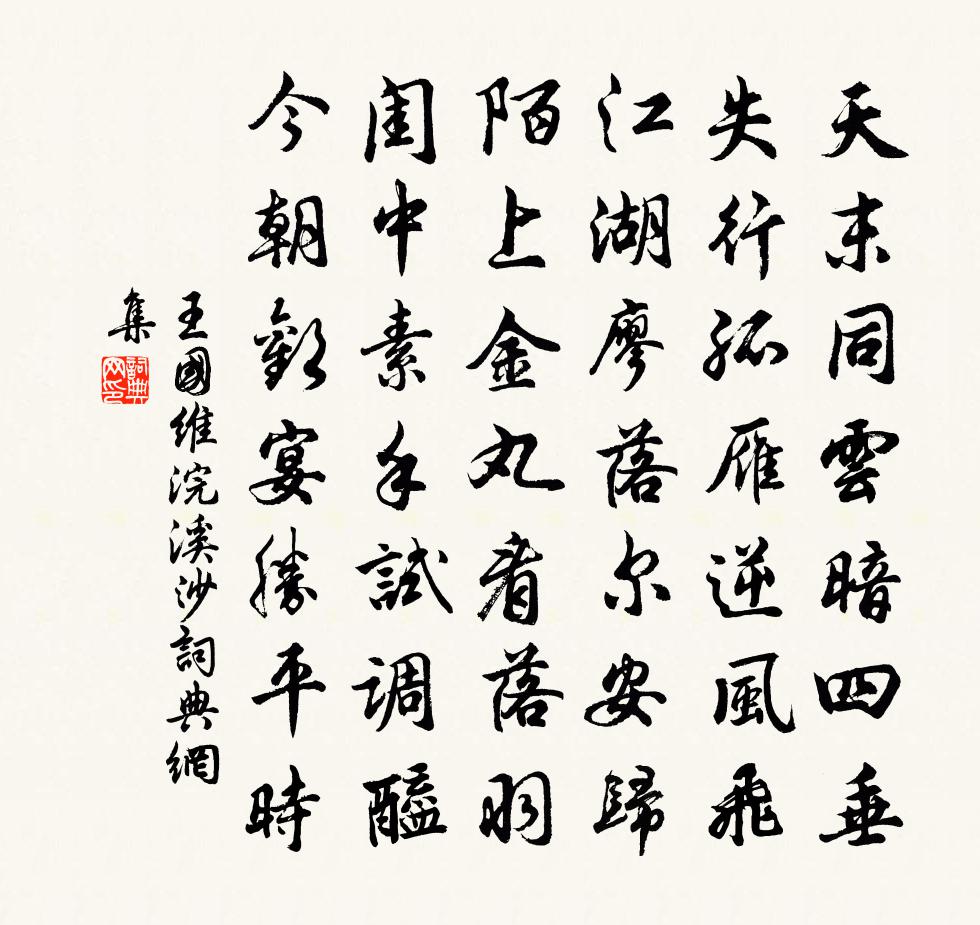 天末同雲暗四垂
失行孤雁逆風飛
江湖廖落尔安歸
陌上金丸看落羽
闺中素手試調醯
今朝歡宴勝平時
王國維浣溪沙詞典網
集
詞典网印